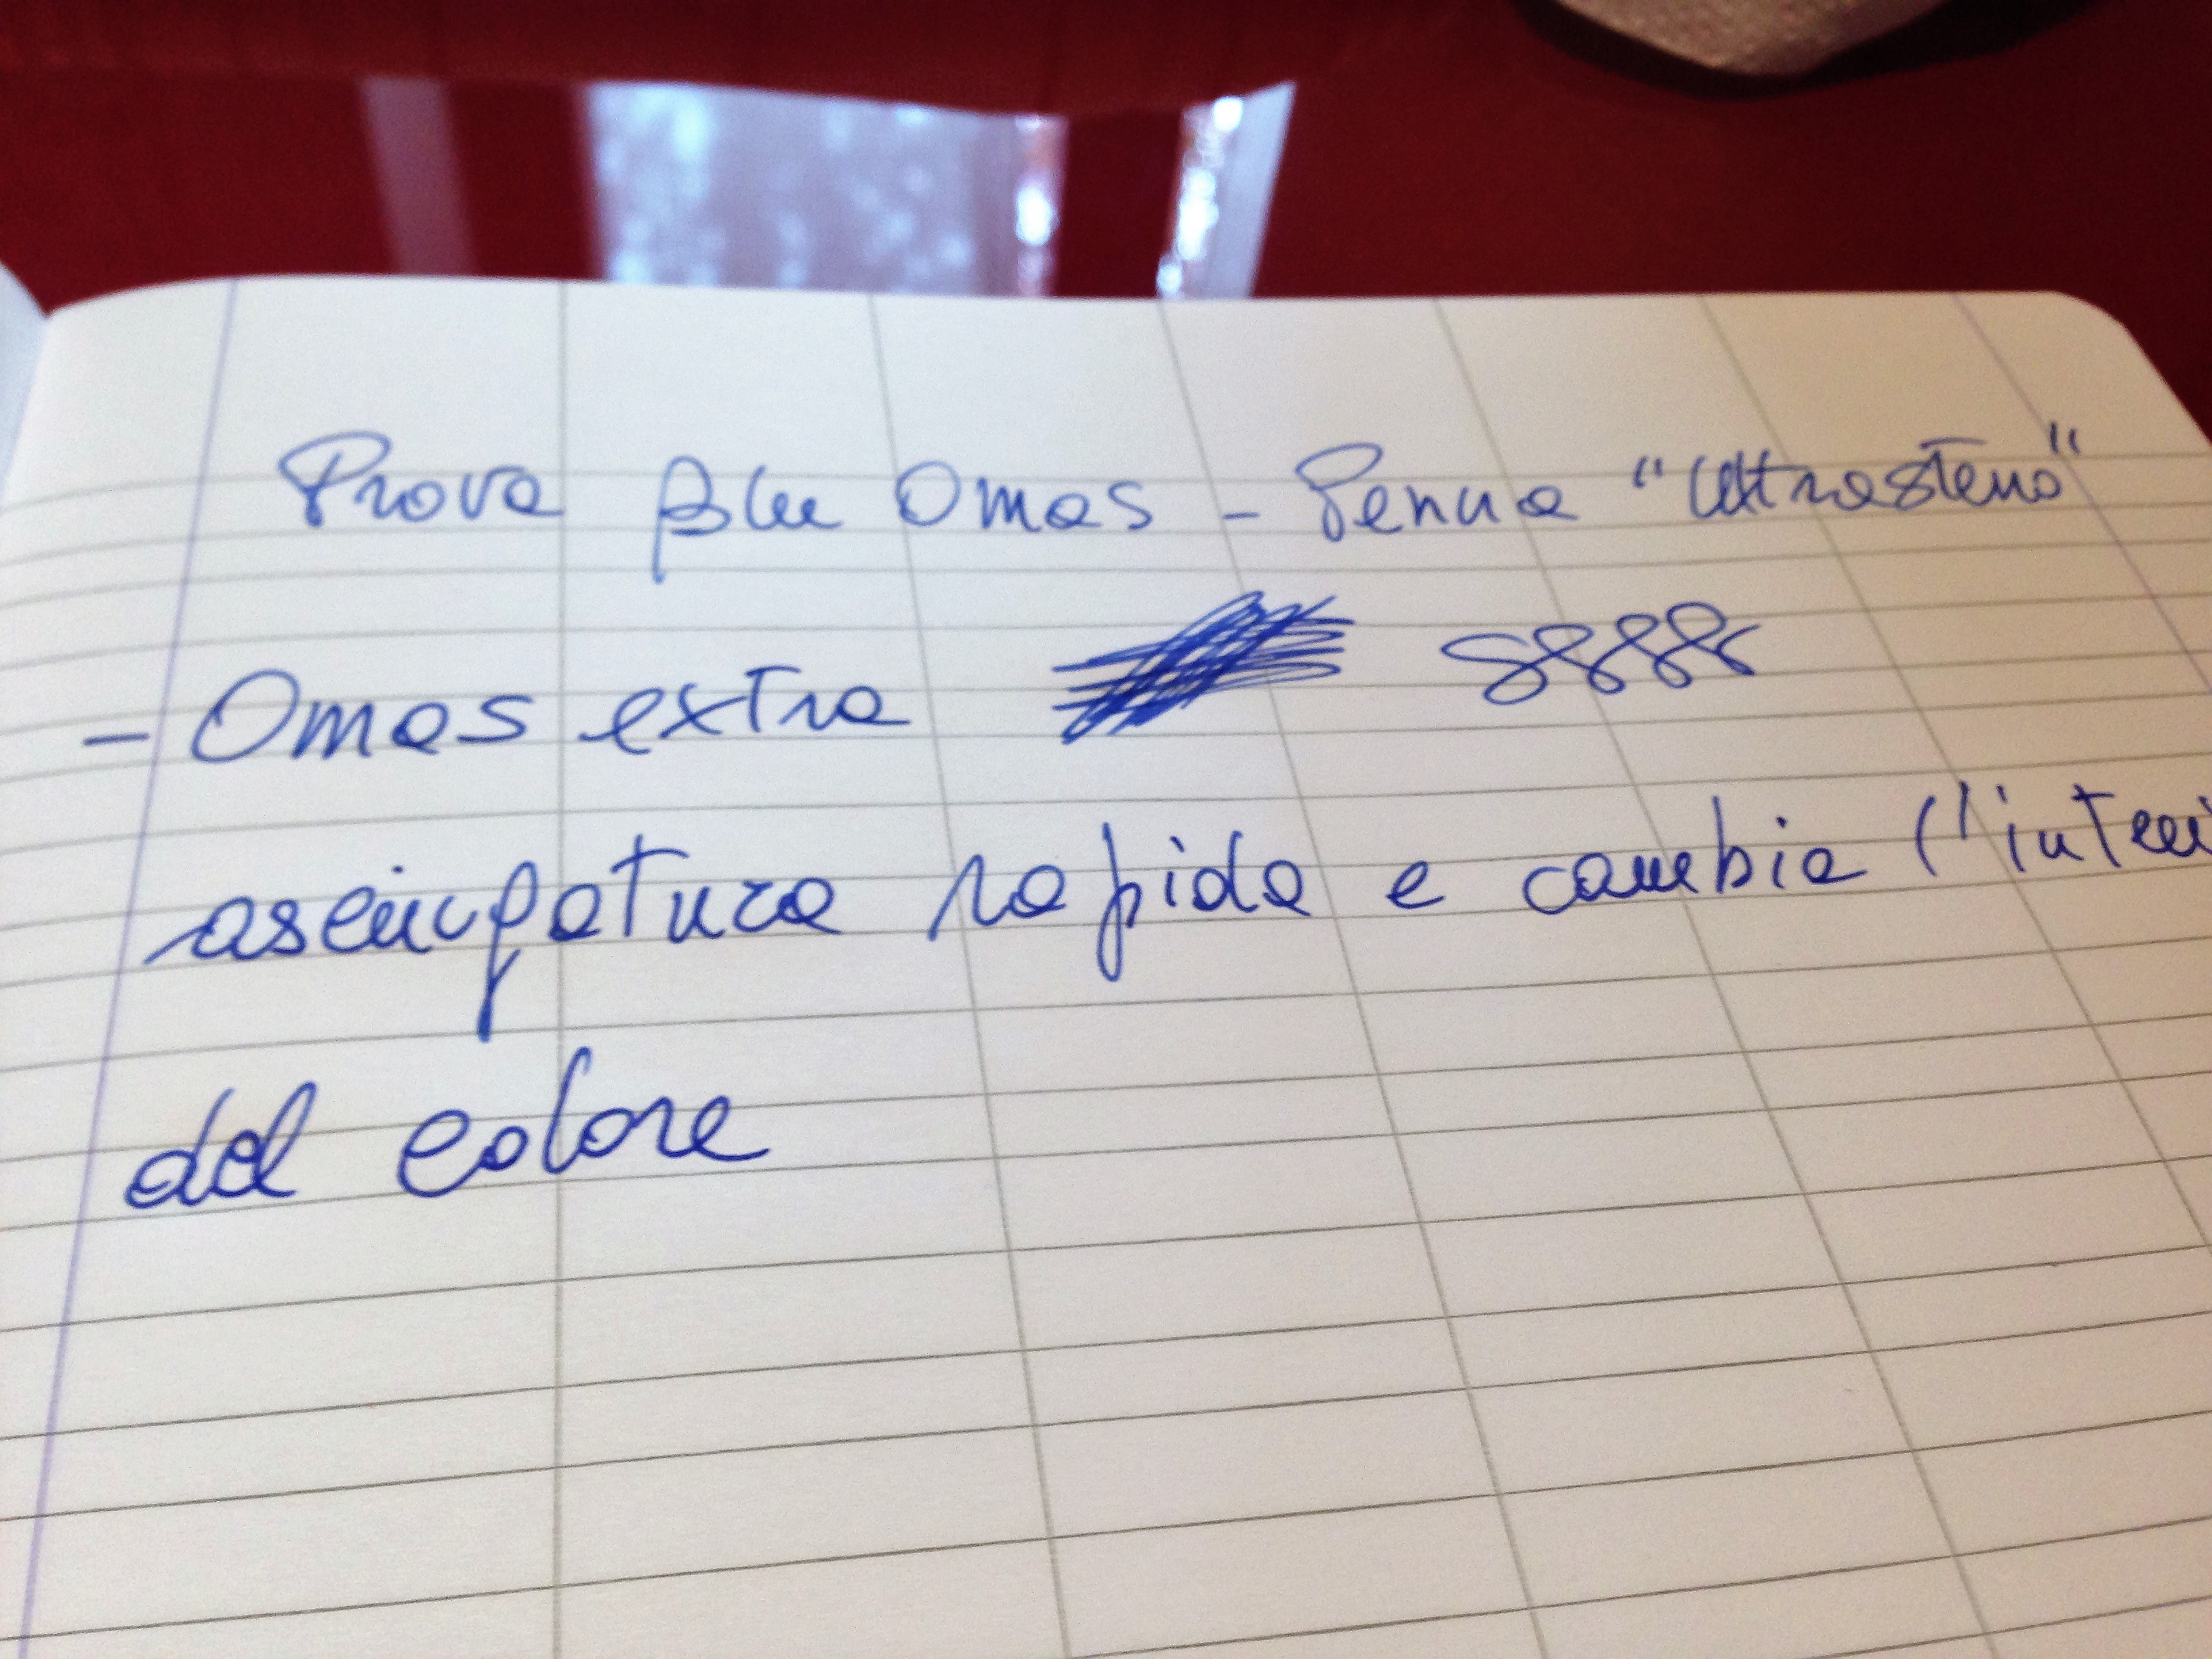 Prova Blu Omas - Penna "Ultrasteno"
- Omas extra 8888
asciugatura rapida e cambia l'inten
del colore